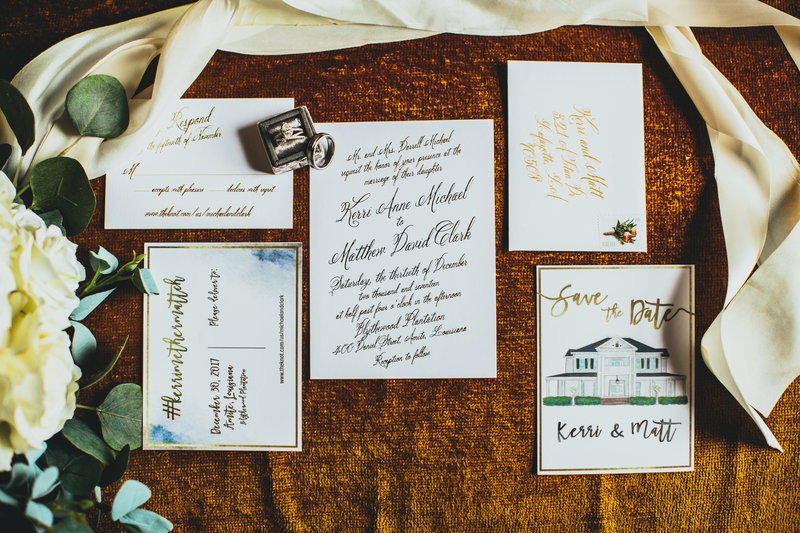 Respond
by the fifteenth of November
M
accepts with pleasure
declines with regret
www.theknot.com/us/michaelandclark
Mr. and Mrs. Darrell Michael
request the honor of your presence at the
marriage of their daughter
Kerri Anne Michael
to
Matthew David Clark
Saturday, the thirtieth of December
two thousand and seventeen
at half past four o'clock in the afternoon
Blythewood Plantation
400 Daniel Street, Amite, Louisiana
Reception to follow
Kerri and Matt
70508
#kerrimethermattch
Please deliver to:
December 30, 2017
Amite, Louisiana
Blythewood Plantation
www.theknot.com/us/michaelandclark
Save
the
Date
Kerri & Matt